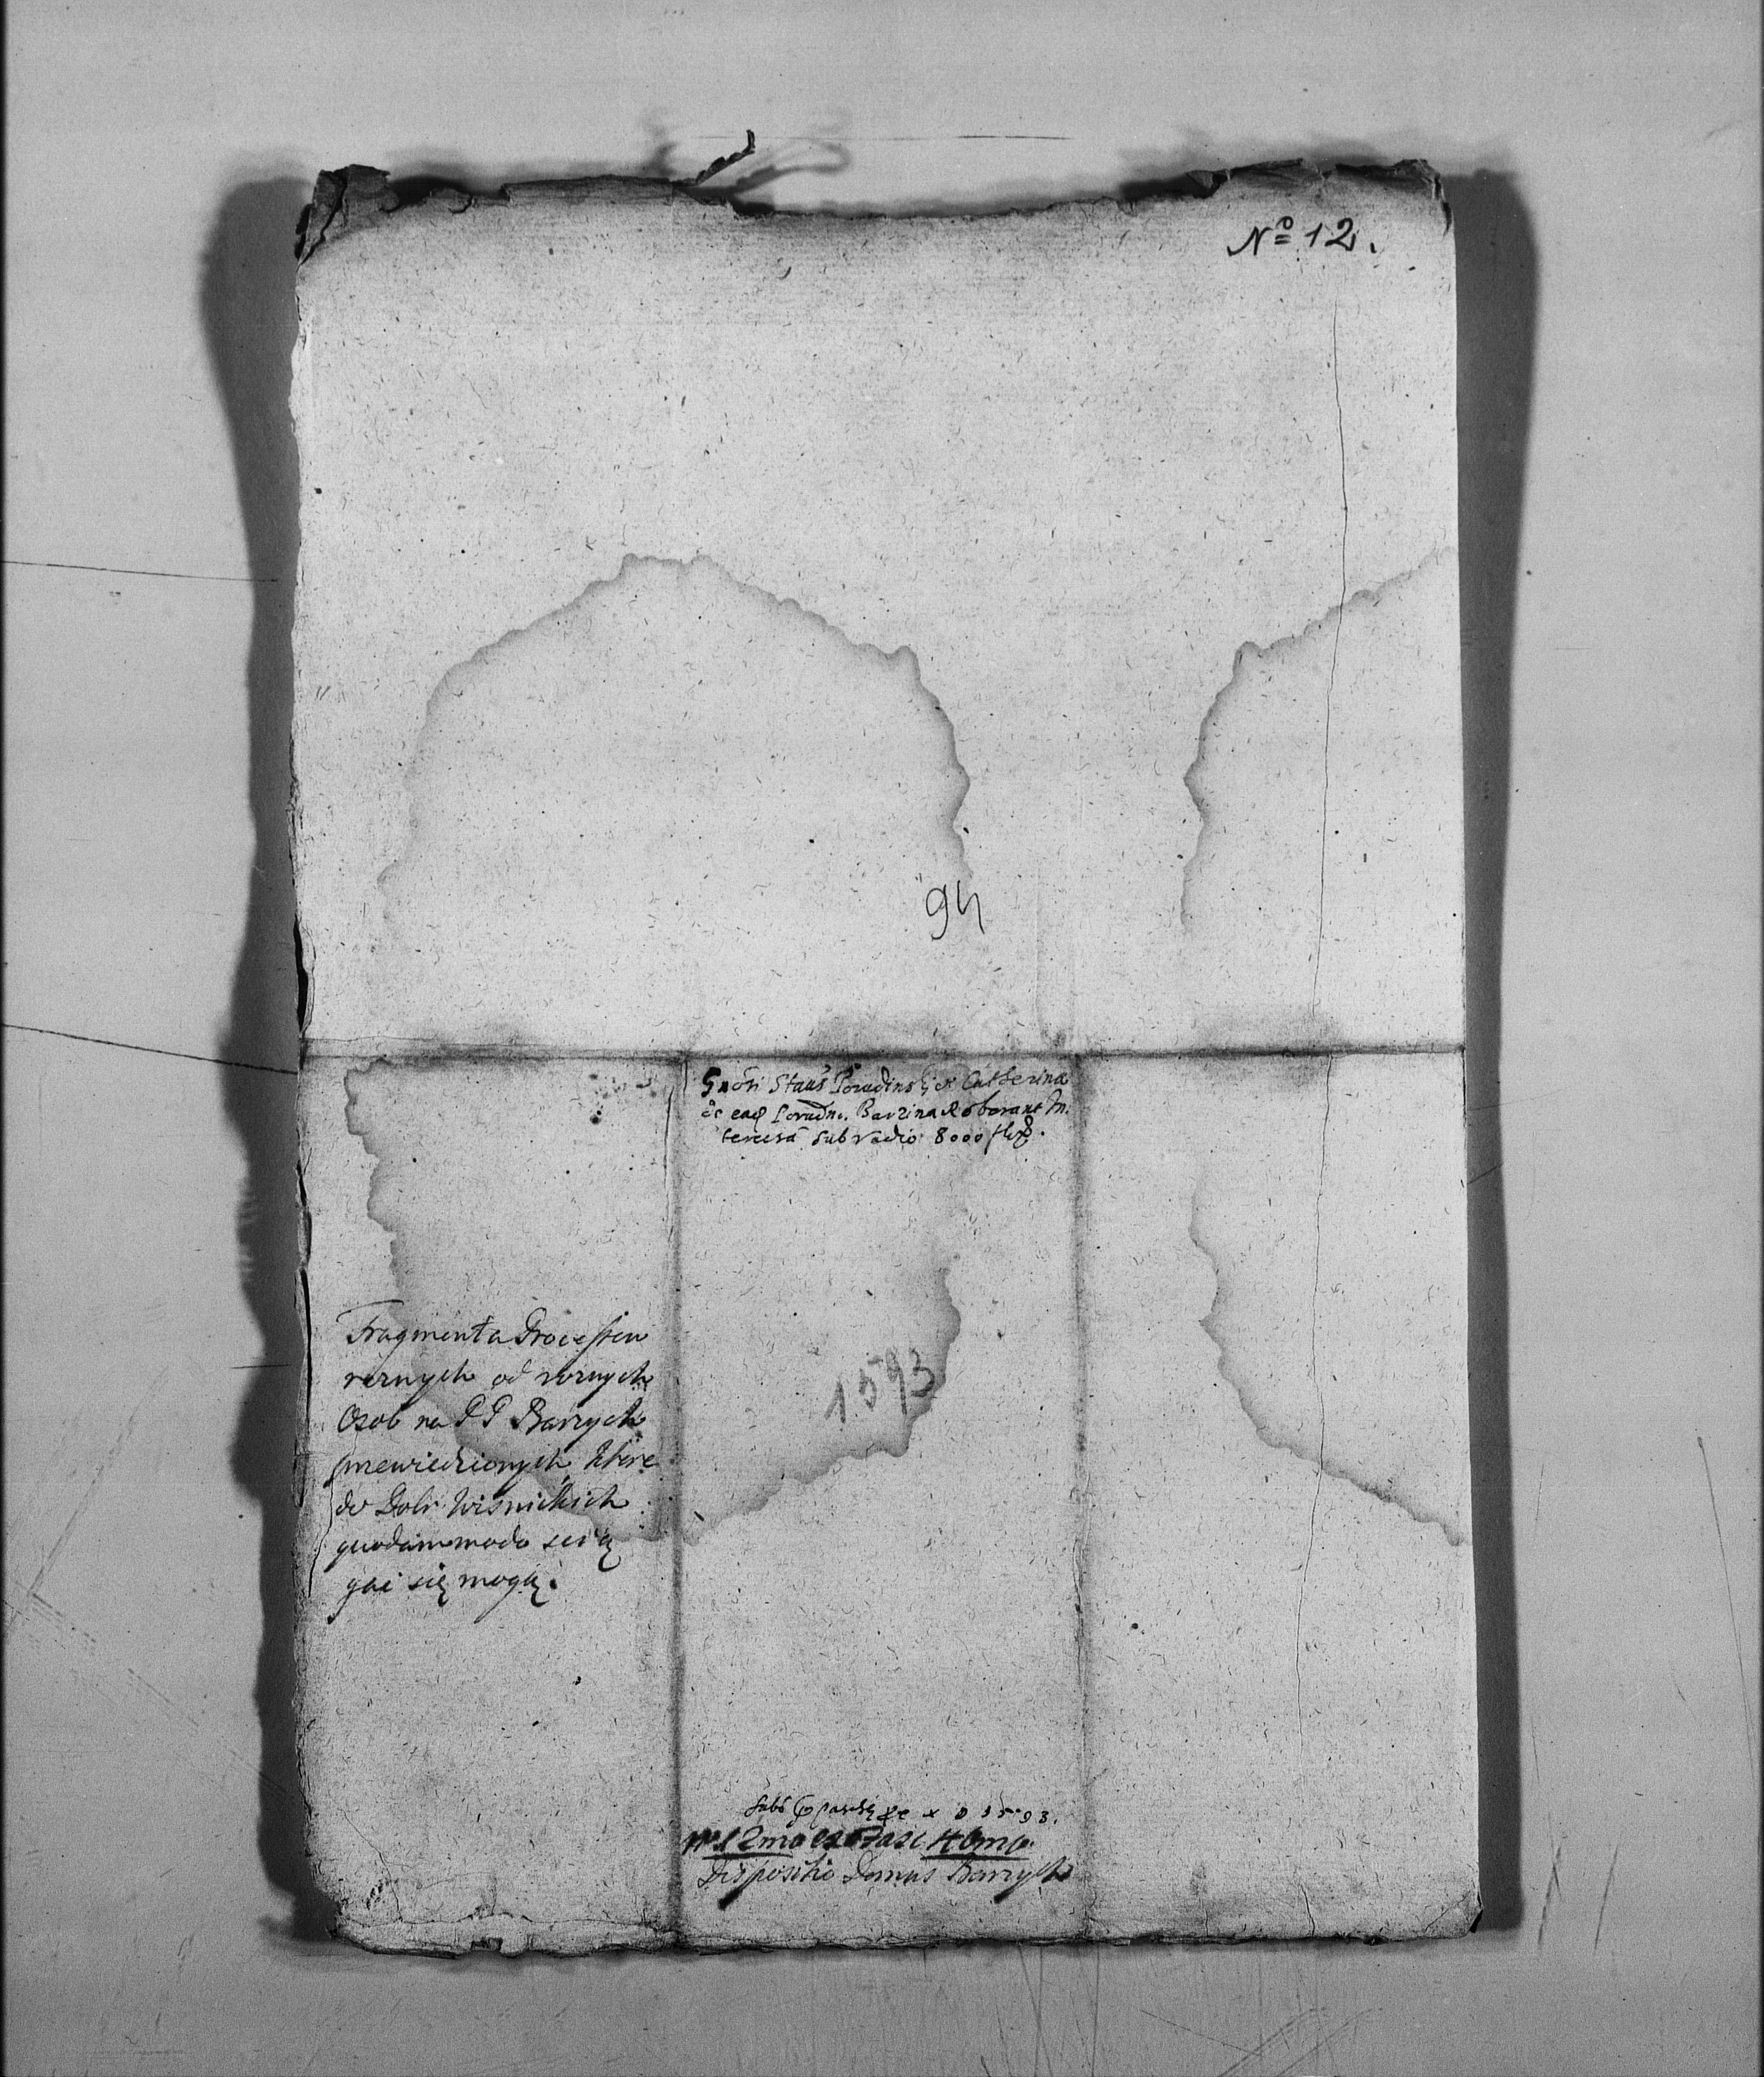 Nº 12.
94
Gnosi Staús Poradins et Catherina
de eade Poradn. Barzina Roborant In
tercisā sub vadio 8000
Fragmenta Processow
rożnych od rożnych
Osob na PP Barzych
przewiedzionych, ktore
do Dobr Wisnickich
quodammodo scią
gać się mogą.
1593
Sabō pasche 1593.
Nº 12mo ex Fasc
Dispositio Domus Barzych